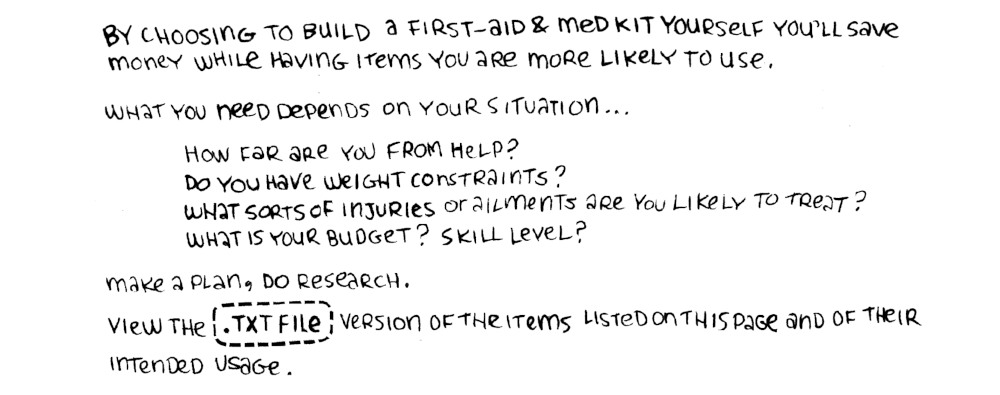 BY CHOOSING TO BUILD a FIRST-aID & meD KIT YOURSeLF YOU'LL Save
money WHILe HavING ITems YOU aRe moRe LIKeLY TO Use.
WHaT YOU neeD DePenDS on YOUR SITUaTIon...
HOW FaR aRe YOU FROM HeLP?
DO YOU Have WeIGHT consTRaInTs?
WHaT SORTS OF InJURIes or aILmenTs aRe YOU LIKeLY TO TReaT?
WHaT IS YOUR BUDGeT? SKILL LeveL?
make a PLan, DO ReseaRCH.
VIew THe .TXT FILe VeRSIOn OF THe ITems LISTeD On THIS Page anD OF THeIR
InTenDeD Usage.